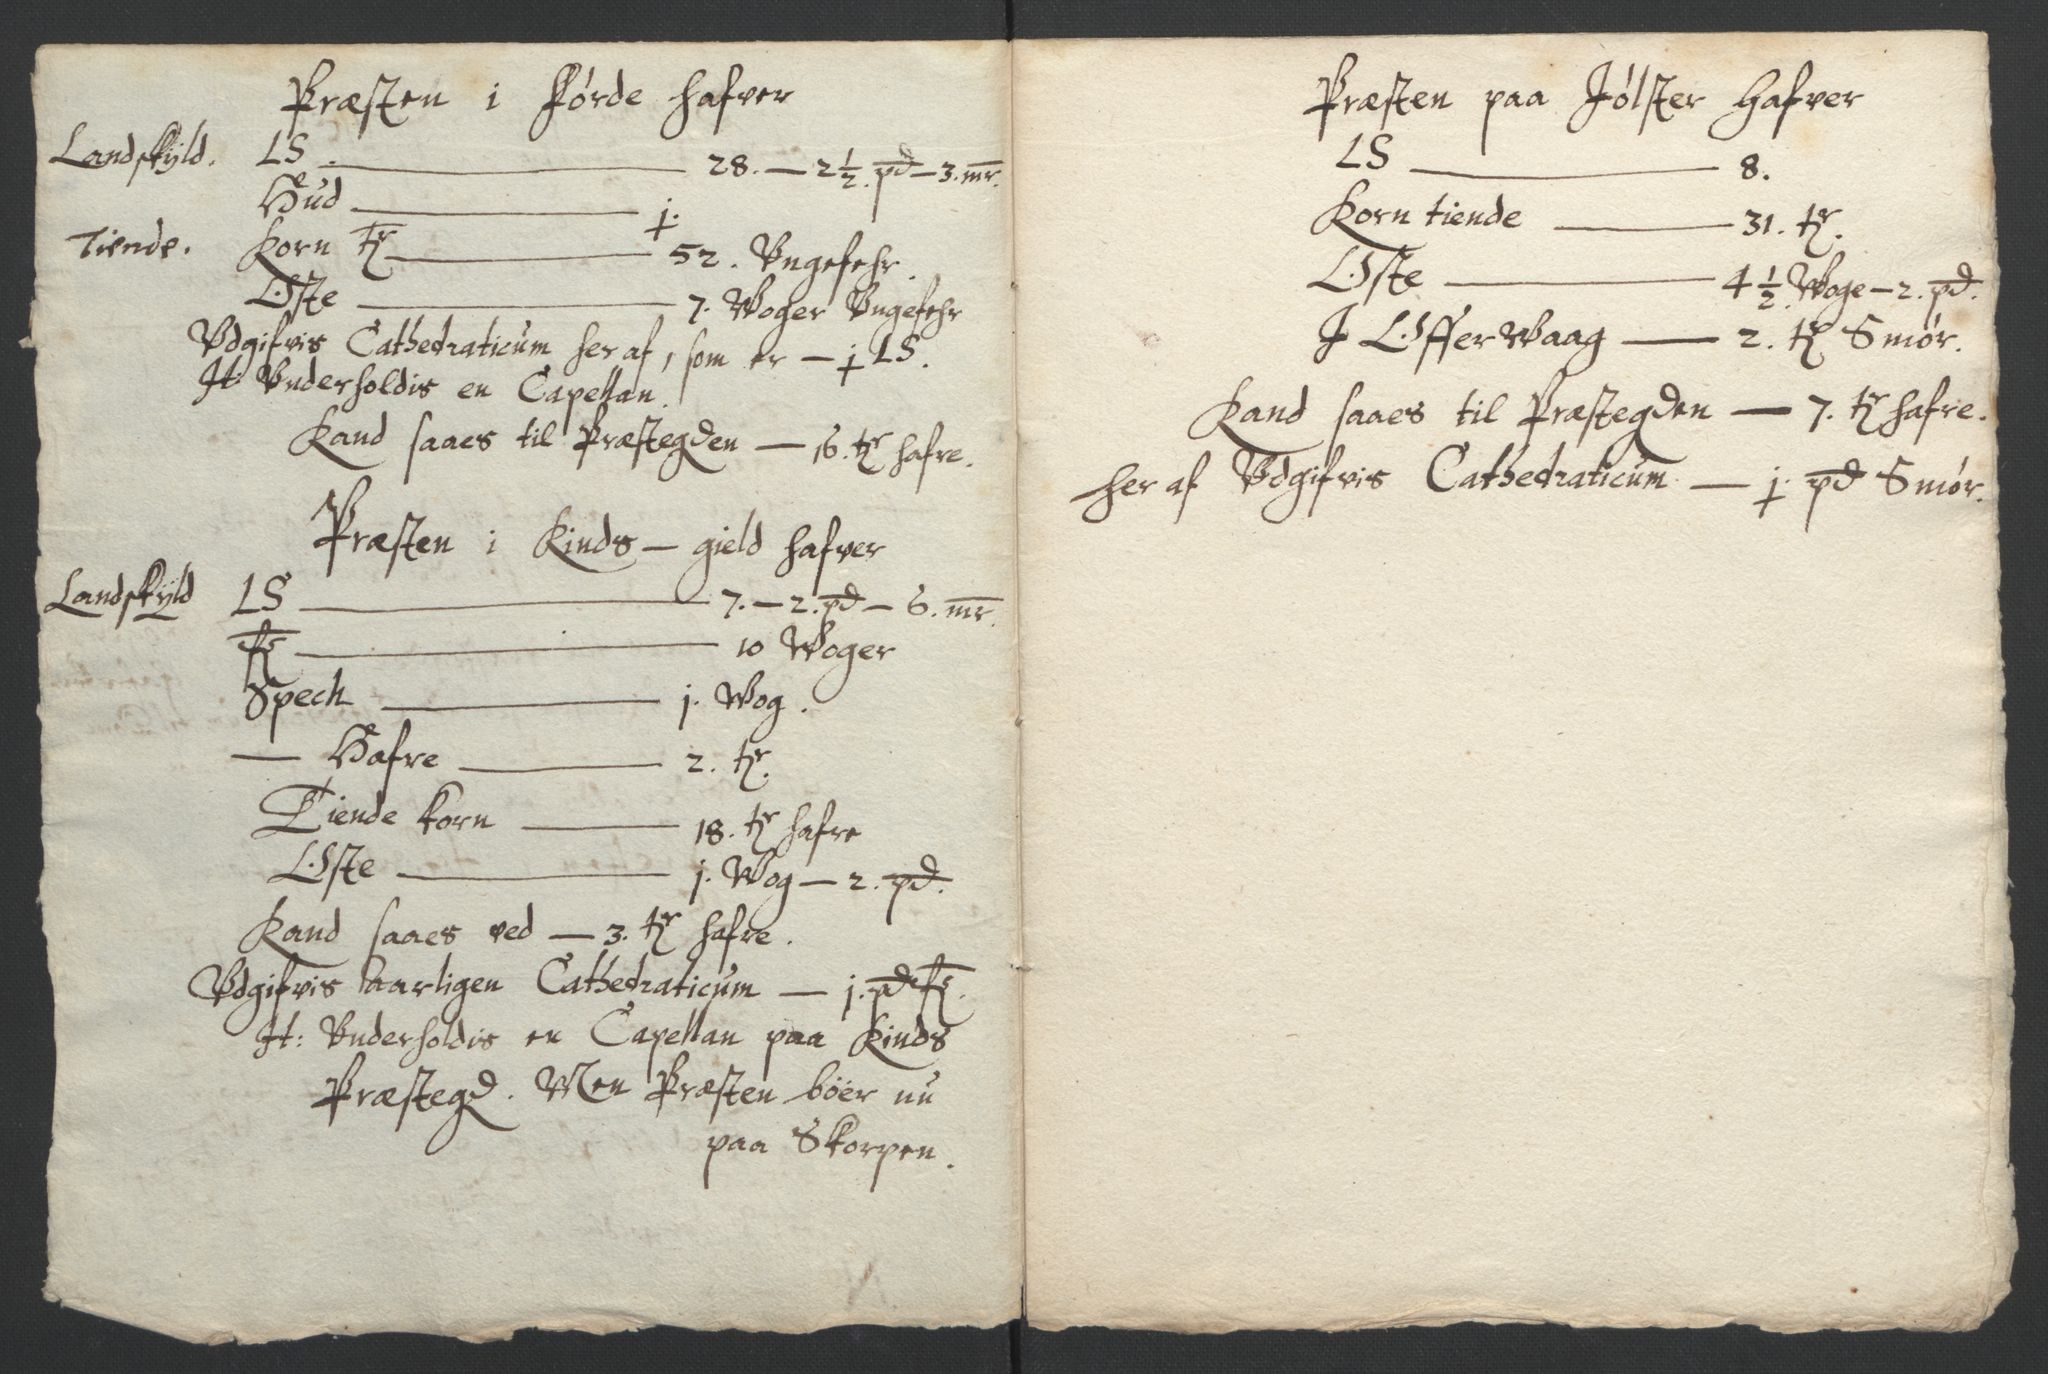 Præsten i Førde hafver
Landskyld. LS. — 28. — 2 1/2 pd — 3. mr.
Hud — j.
Tiende. Korn tr — 52. Vngefehr.
Oste — 7. Woger Vngefehr
Vdgifvis Cathedraticum her af, som er — j LS.
It: Vnderholdis en Capellan.
Kand saaes til Præstegden — 16. tr hafre.
Præsten i Kinds — gield hafver
Landskyld LS — 7. — 2. pd — 6. mr.
fr — 10 Woger
Spech — j. Wog.
— Hafre — 2. tr.
Tiende korn — 18. tr hafre
Oste — j. Wog — 2. pd.
Kand saaes ved — 3. tr hafre.
Vdgifvis aarligen Cathedraticum — j. pd fr.
It: Vnderholdis en Capellan paa Kinds
Præstegd. Men Præsten bóer nu
paa Skorpen.
Præsten paa Jølster Hafver
LS — 8.
Korn tiende — 31. tr.
Oste — 4 1/2 Woge — 2. pd.
J Offer Waag — 2. tr Smør.
Kand saaes til Præstegden — 7. tr hafre.
her af Vdgifvis Cathedraticum — j. pd Smør.